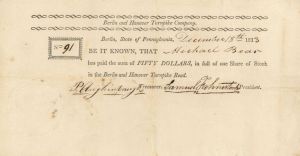 Berlin and Hanover Turnpike Company.
Berlin, State of Pennsylvania, December 18th 1813
No. 91
BE IT KNOWN, THAT Michael Bear
has paid the sum of FIFTY DOLLARS, in full of one Share of Stock
in the Berlin and Hanover Turnpike Road.
Treasurer, Samuel Johnston President.